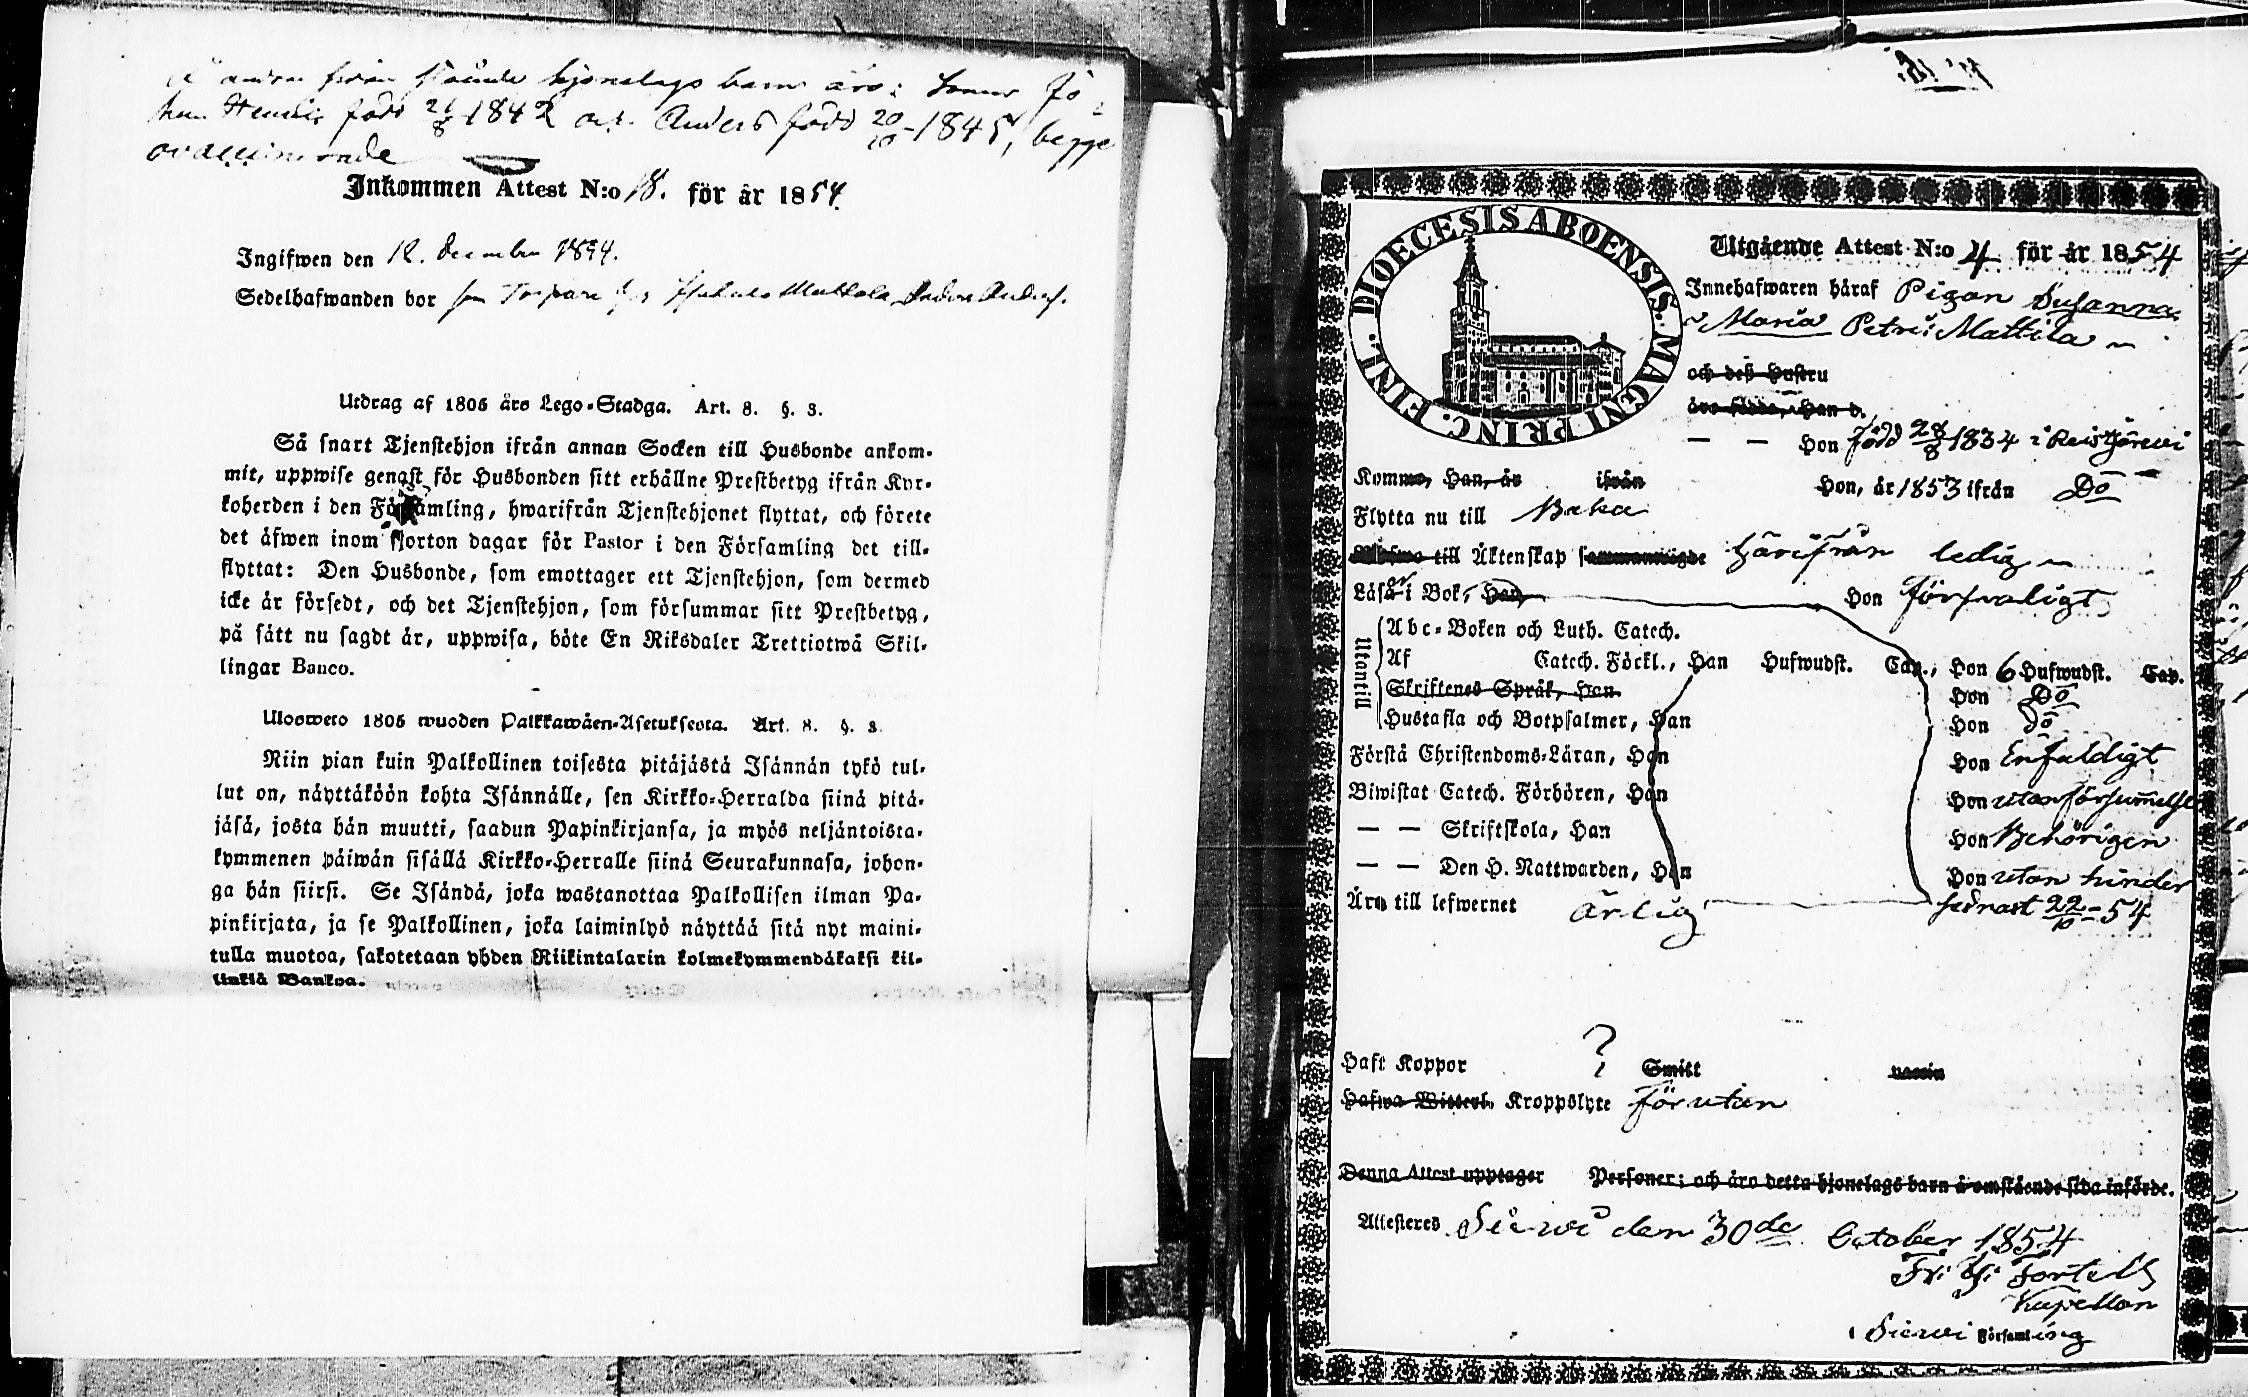 barn äro:
född 21/8 1842 Anders född 20/10-1845, begge
Inkommen Attest N:o 18. för år 1854.
Ingifwen den 12. December 1854.
Sedelhafwanden bor
Utdrag af 1805 års Lego-Stadga. Art. 8. §. 3.
Så snart Tjenstehjon ifrån annan Socken till Husbonde ankom-
mit, uppwise genast för Husbonden sitt erhållne Prestbetyg ifrån Kyr-
koherden i den Församling, hwarifrån Tjenstehjonet flyttat, och förete
det äfwen inom fjorton dagar för Pastor i den Församling det till-
flyttat: Den Husbonde, som emottager ett Tjenstehjon, som dermed
icke är försedt, och det Tjenstehjon, som försummar sitt Prestbetyg,
på sätt nu sagdt är, uppwisa, böte En Riksdaler Trettiotwå Skil-
lingar Banco.
Ulosweto 1805 wuoden Palkkawäen-Asetuksesta. Art. 8. §. 3.
Niin pian kuin Palkollinen toisesta pitäjästä Isännän tykö tul-
lut on, näyttäköön kohta Isännälle, sen Kirkko-Herralda siinä pitä-
jäsä, josta hän muutti, saadun Papinkirjansa, ja myös neljäntoista-
kymmenen päiwän sisällä Kirkko-Herralle siinä Seurakunnasa, johon-
ga hän siirsi. Se Isändä, joka wastanottaa Palkollisen ilman Pa-
pinkirjata, ja se Palkollinen, joka laiminlyö näyttää sitä nyt maini-
tulla muotoa, sakotetaan yhden Riikintalarin kolmekymmendäkaksi kil-
linkiä Bankoa.
DIOECESIS ABOENSIS. MAGNI PRINC. FINL.
Utgående Attest N:o 4 för år 1854
Innehafwaren häraf Pigan Susanna
Maria Petri: Mattila
och deß Hustru
äro födde, Han d.
— — Hon född 28/8 1834 i Reisjärwi
Komne, Han, år ifrån Hon, år 1853 ifrån Do
Flytta nu till
till Äktenskap härifrån ledig
Läsa i Bok, Han, Hon försvaligt
Utantill
Abc-Boken och Luth. Catech.
Af Catech. Föckl., Han Hufwudst. Cap., Hon 6 Hufwudst. Cap.
Skriftenes Språk, Han Hon Do
Hustafla och Botpsalmer, Han Hon Do
Förstå Christendoms-Läran, Han Hon Enfaldigt
Biwistat Catech. Förhören, Han Hon utan försummelse
— — Skriftskola, Han Hon Behörigen
— — Den H. Nattwarden, Han Hon utan hinder
Äro till lefwernet ärlig sednast 22/10-54
Haft Koppor ? Smitt vaccin
Hafwa Witterl. Kroppslyte förutan
Denna Attest upptager Personer; och äro detta hjonelags barn å omstående sida införde.
Attesteres Siewi den 30de October 1854
Kapellan
i Siewi Församling